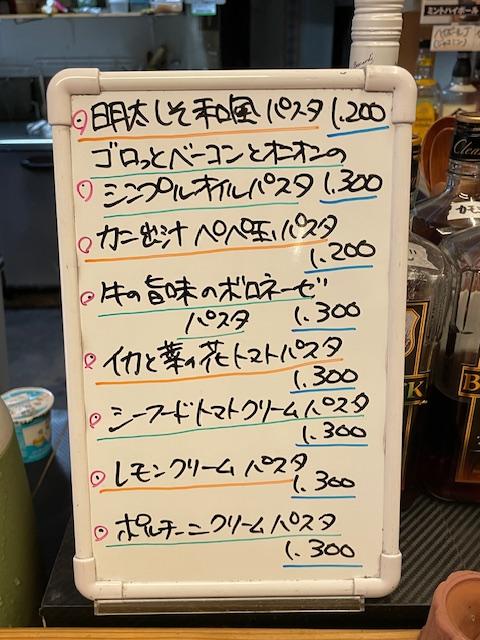 ミントハイボール
明太しそ和風パスタ 1.200
ゴロっとベーコンとオニオンの
シンプルオイルパスタ 1.300
カニ出汁ペペ玉パスタ
1.200
牛の旨味のボロネーゼ
パスタ 1.300
イカと菜の花トマトパスタ
1.300
シーフードトマトクリームパスタ
1.300
レモンクリームパスタ
1.300
ポルチーニクリームパスタ
1.300